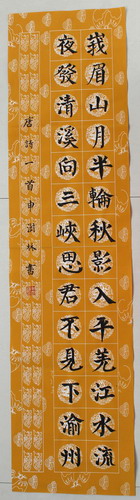 峩眉山月半輪秋影入平羌江水流
夜發清溪向三峽思君不見下渝州
唐詩一首申澍林書